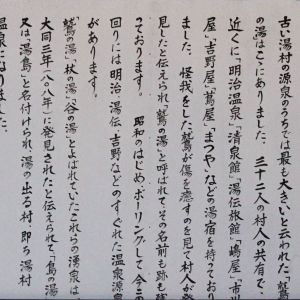 古い湯村の源泉のうちでは最も大きいと云われた「鷲
の湯はこゝにありました。三十二人の村人の共有で、
近くに「明治温泉」「清泉館」「湯伝旅館」「嶋屋」「市川
屋」「吉野屋」「蔦屋」「まつや」などの湯宿を持ており
ました。怪我をした鷲が傷を癒すのを見て村人が発
見したと伝えられ、鷲の湯と呼ばれて、その名前も跡も残
ております。昭和のはじめボーリングして今の
回りには明治・湯伝・吉野などのすぐれた温泉源泉
があります。
鷲の湯」「杖の湯」「谷の湯」とよばれていたこれらの湯泉は
大同三年(八〇八年)に発見されたと伝えられて「島の湯
又は「湯島」と名付けられ、湯の出る村即ち湯村
温泉になりました。